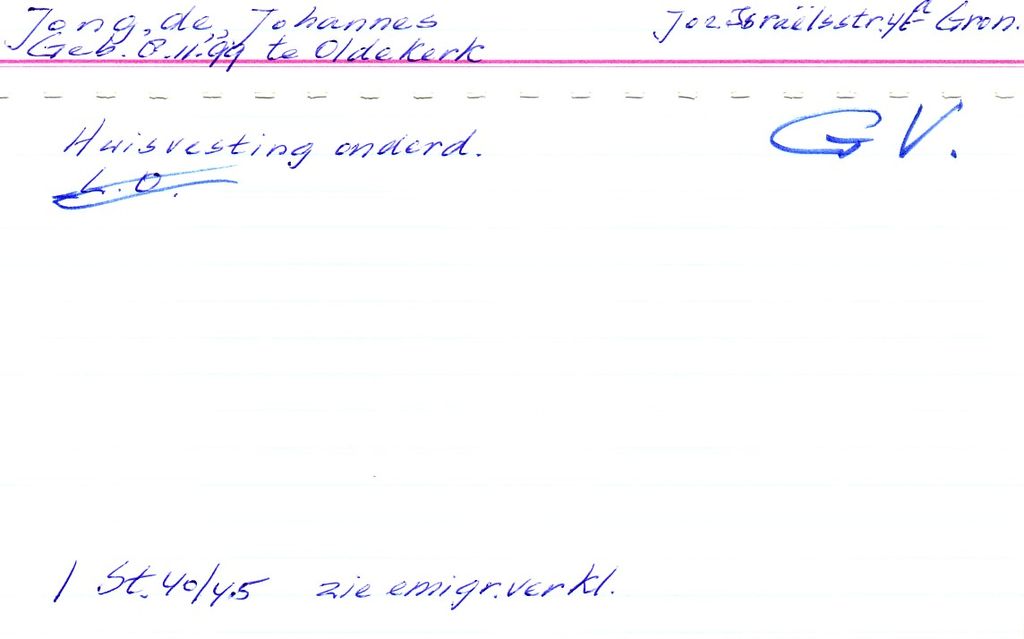 Jong, de, Johannes
Joz. Israëlsstr. 4E Gron.
Geb. 8.11.99 te Oldekerk
Huisvesting onderd.
G V.
L.O.
/ St. 40/45 zie emigr.verkl.